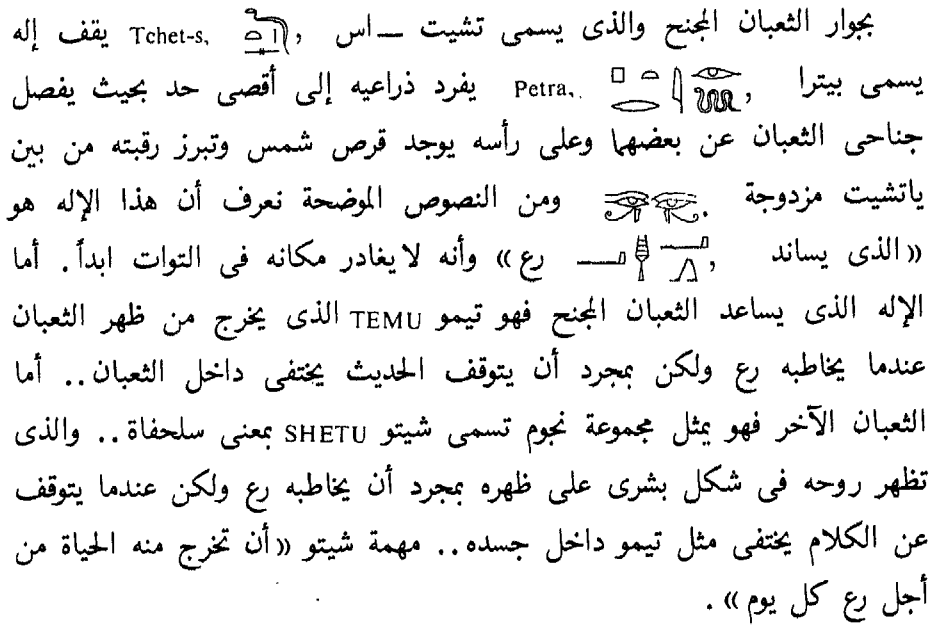 بجوار الثعبان المجنح والذى يسمى تشيت ــ اس , Tchet-s, يقف إله
يسمى بيترا , Petra,. يفرد ذراعيه إلى أقصى حد بحيث يفصل
جناحى الثعبان عن بعضهما وعلى رأسه يوجد قرص شمس وتبرز رقبته من بين
ياتشيت مزدوجة . ومن النصوص الموضحة نعرف أن هذا الإله هو
«الذى يساند , رع» وأنه لا يغادر مكانه فى التوات ابداً. أما
الإله الذى يساعد الثعبان المجنح فهو تيمو TEMU الذى يخرج من ظهر الثعبان
عندما يخاطبه رع ولكن بمجرد أن يتوقف الحديث يختفى داخل الثعبان.. أما
الثعبان الآخر فهو يمثل مجموعة نجوم تسمى شيتو SHETU بمعنى سلحفاة.. والذى
تظهر روحه فى شكل بشرى على ظهره بمجرد أن يخاطبه رع ولكن عندما يتوقف
عن الكلام يختفى مثل تيمو داخل جسده.. مهمة شيتو «أن تخرج منه الحياة من
أجل رع كل يوم».